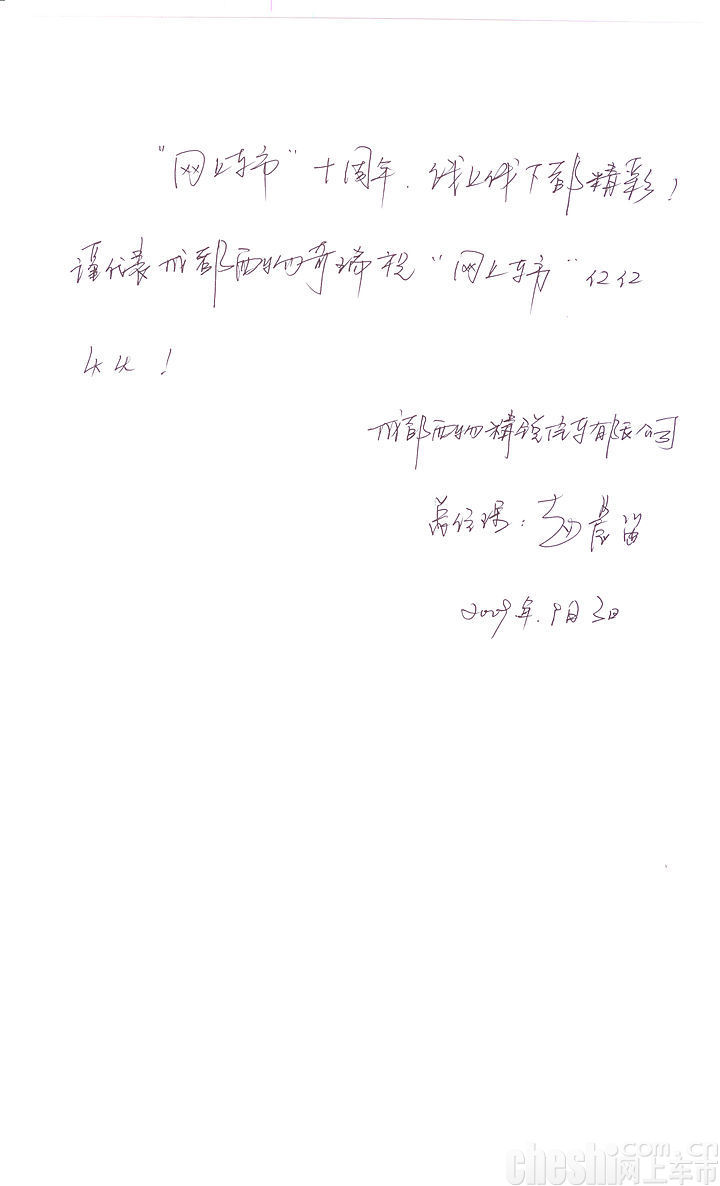 “网上车市”十周年,线上线下都精彩!
谨代表成都西物奇瑞祝“网上车市”红红
火火!
成都西物精锐汽车有限公司
总经理:赵
2009年.9月3日
cheshi.com.cn
网上车市